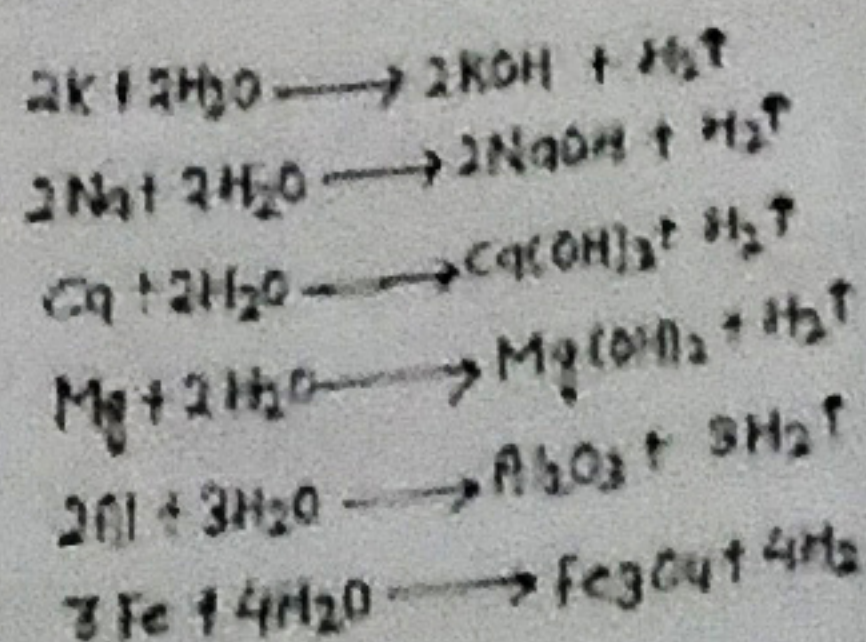 2K + 2H₂O ⟶ 2KOH + H₂↑
2Na + 2H₂O ⟶ 2NaOH + H₂↑
Ca + 2H₂O ⟶ Ca(OH)₂ + H₂↑
Mg + 2H₂O ⟶ Mg(OH)₂ + H₂↑
2Al + 3H₂O ⟶ Al₂O₃ + 3H₂↑
3Fe + 4H₂O ⟶ Fe₃O₄ + 4H₂